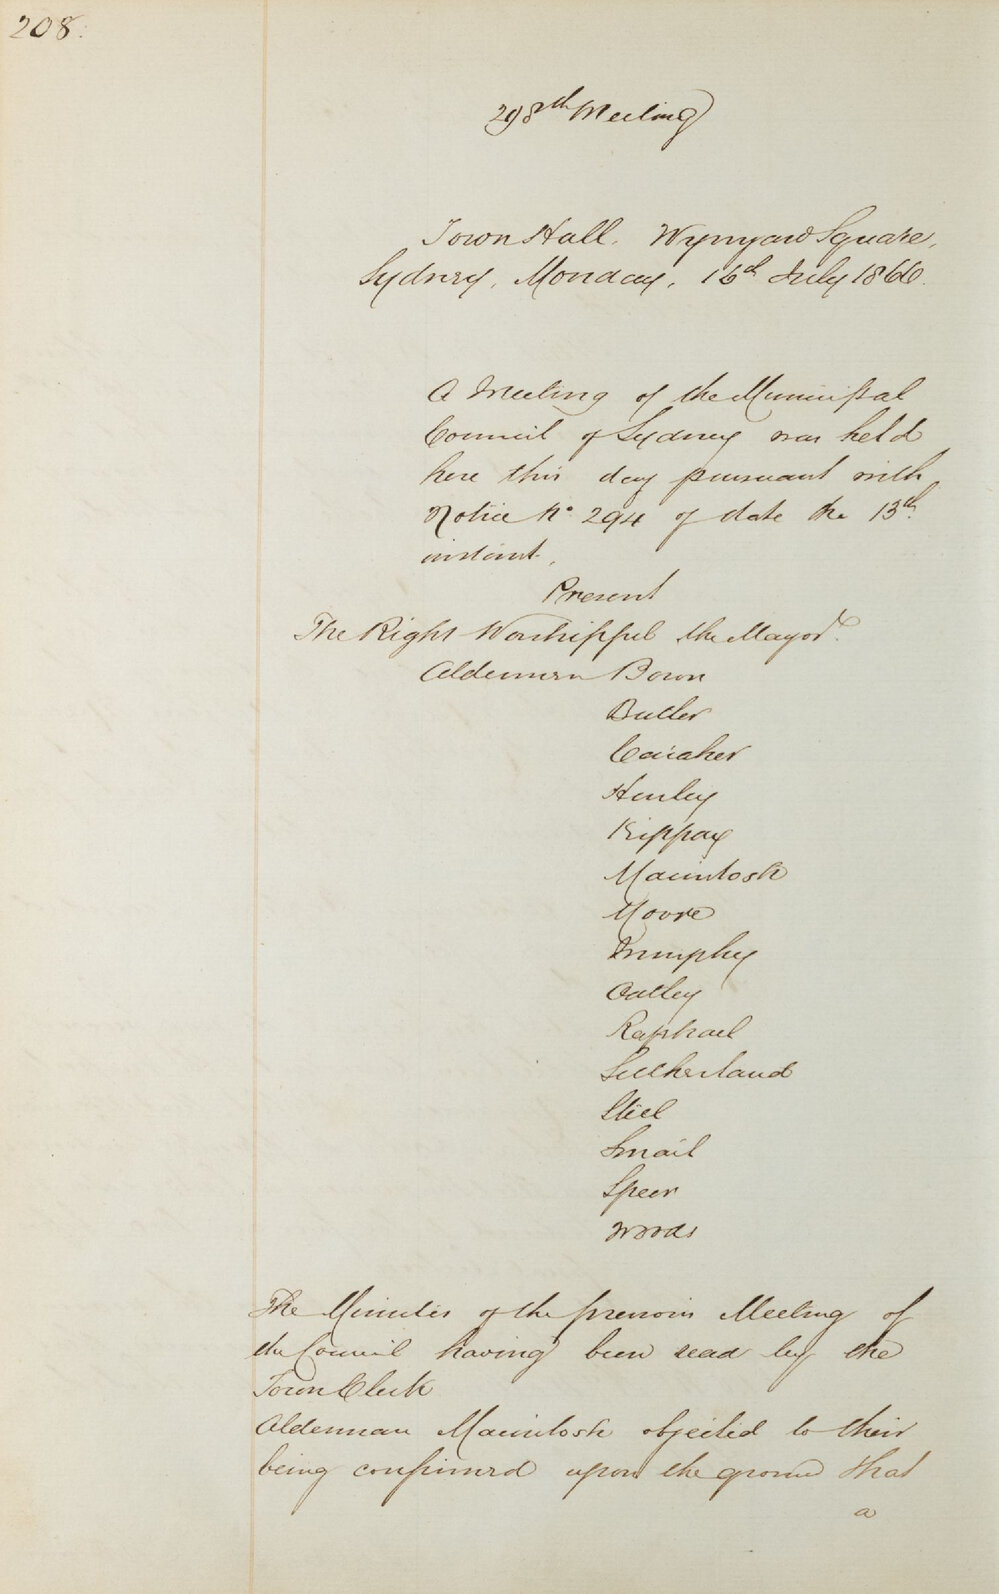 208.
298th Meeting
Town Hall. Wynyard Square,
Sydney, Monday, 16th July 1866.
A Meeting of the Municipal
Council of Sydney was held
here this day pursuant with
Notice No. 294 of date the 13th
instant.
Present
The Right Worshipful the Mayor.
Aldermen Bown
Butler
Caraher
Henley
Kippax
Macintosh
Moore
Murphy
Oatley
Raphael
Sutherland
Steel
Smail
Speer
Woods
The Minutes of the previous Meeting of
the Council having been read by the
Town Clerk
Alderman Macintosh objected to their
being confirmed upon the ground that
a